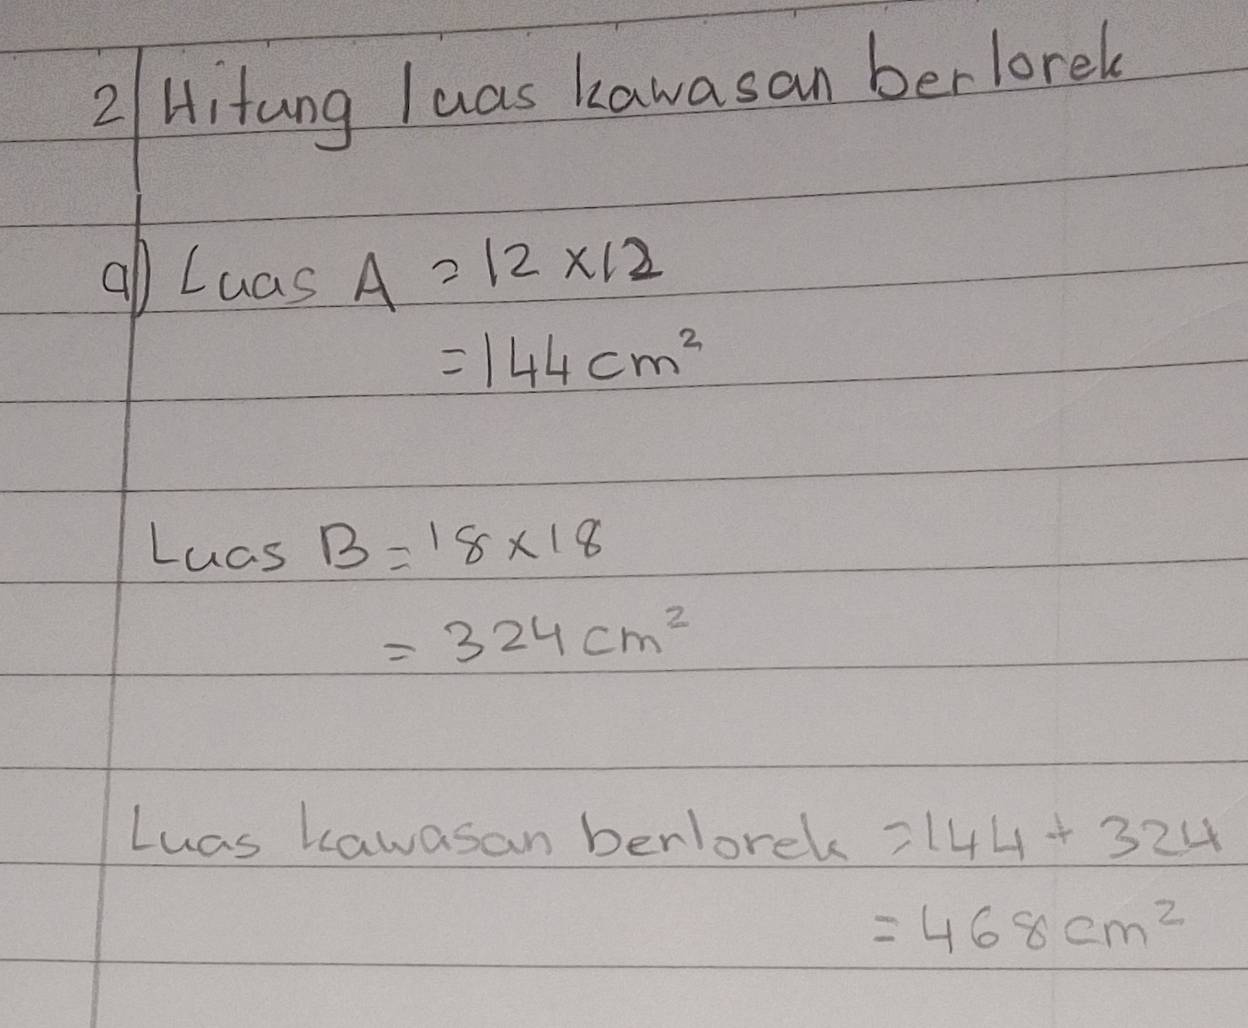 2 Hitung luas kawasan berlorek
a) Luas A = 12 x 12
= 144 cm²
Luas B = 18 x 18
= 324 cm²
Luas kawasan berlorek = 144 + 324
= 468 cm²